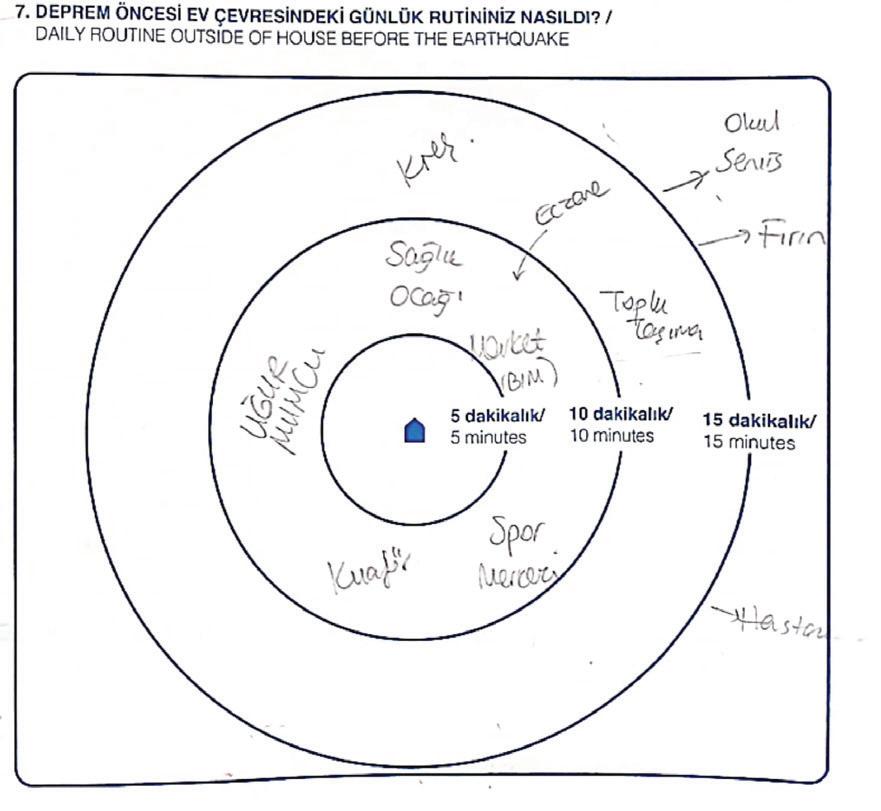 7. DEPREM ÖNCESİ EV ÇEVRESİNDEKİ GÜNLÜK RUTİNİNİZ NASILDI? /
DAILY ROUTINE OUTSIDE OF HOUSE BEFORE THE EARTHQUAKE
Okul
Servis
Kreş
Eczane
Fırın
Sağlık
Ocağı
Toplu
taşıma
Market
(BİM)
UĞUR
MUMCU
5 dakikalık/
5 minutes
10 dakikalık/
10 minutes
15 dakikalık/
15 minutes
Spor
Merkezi
Kuaför